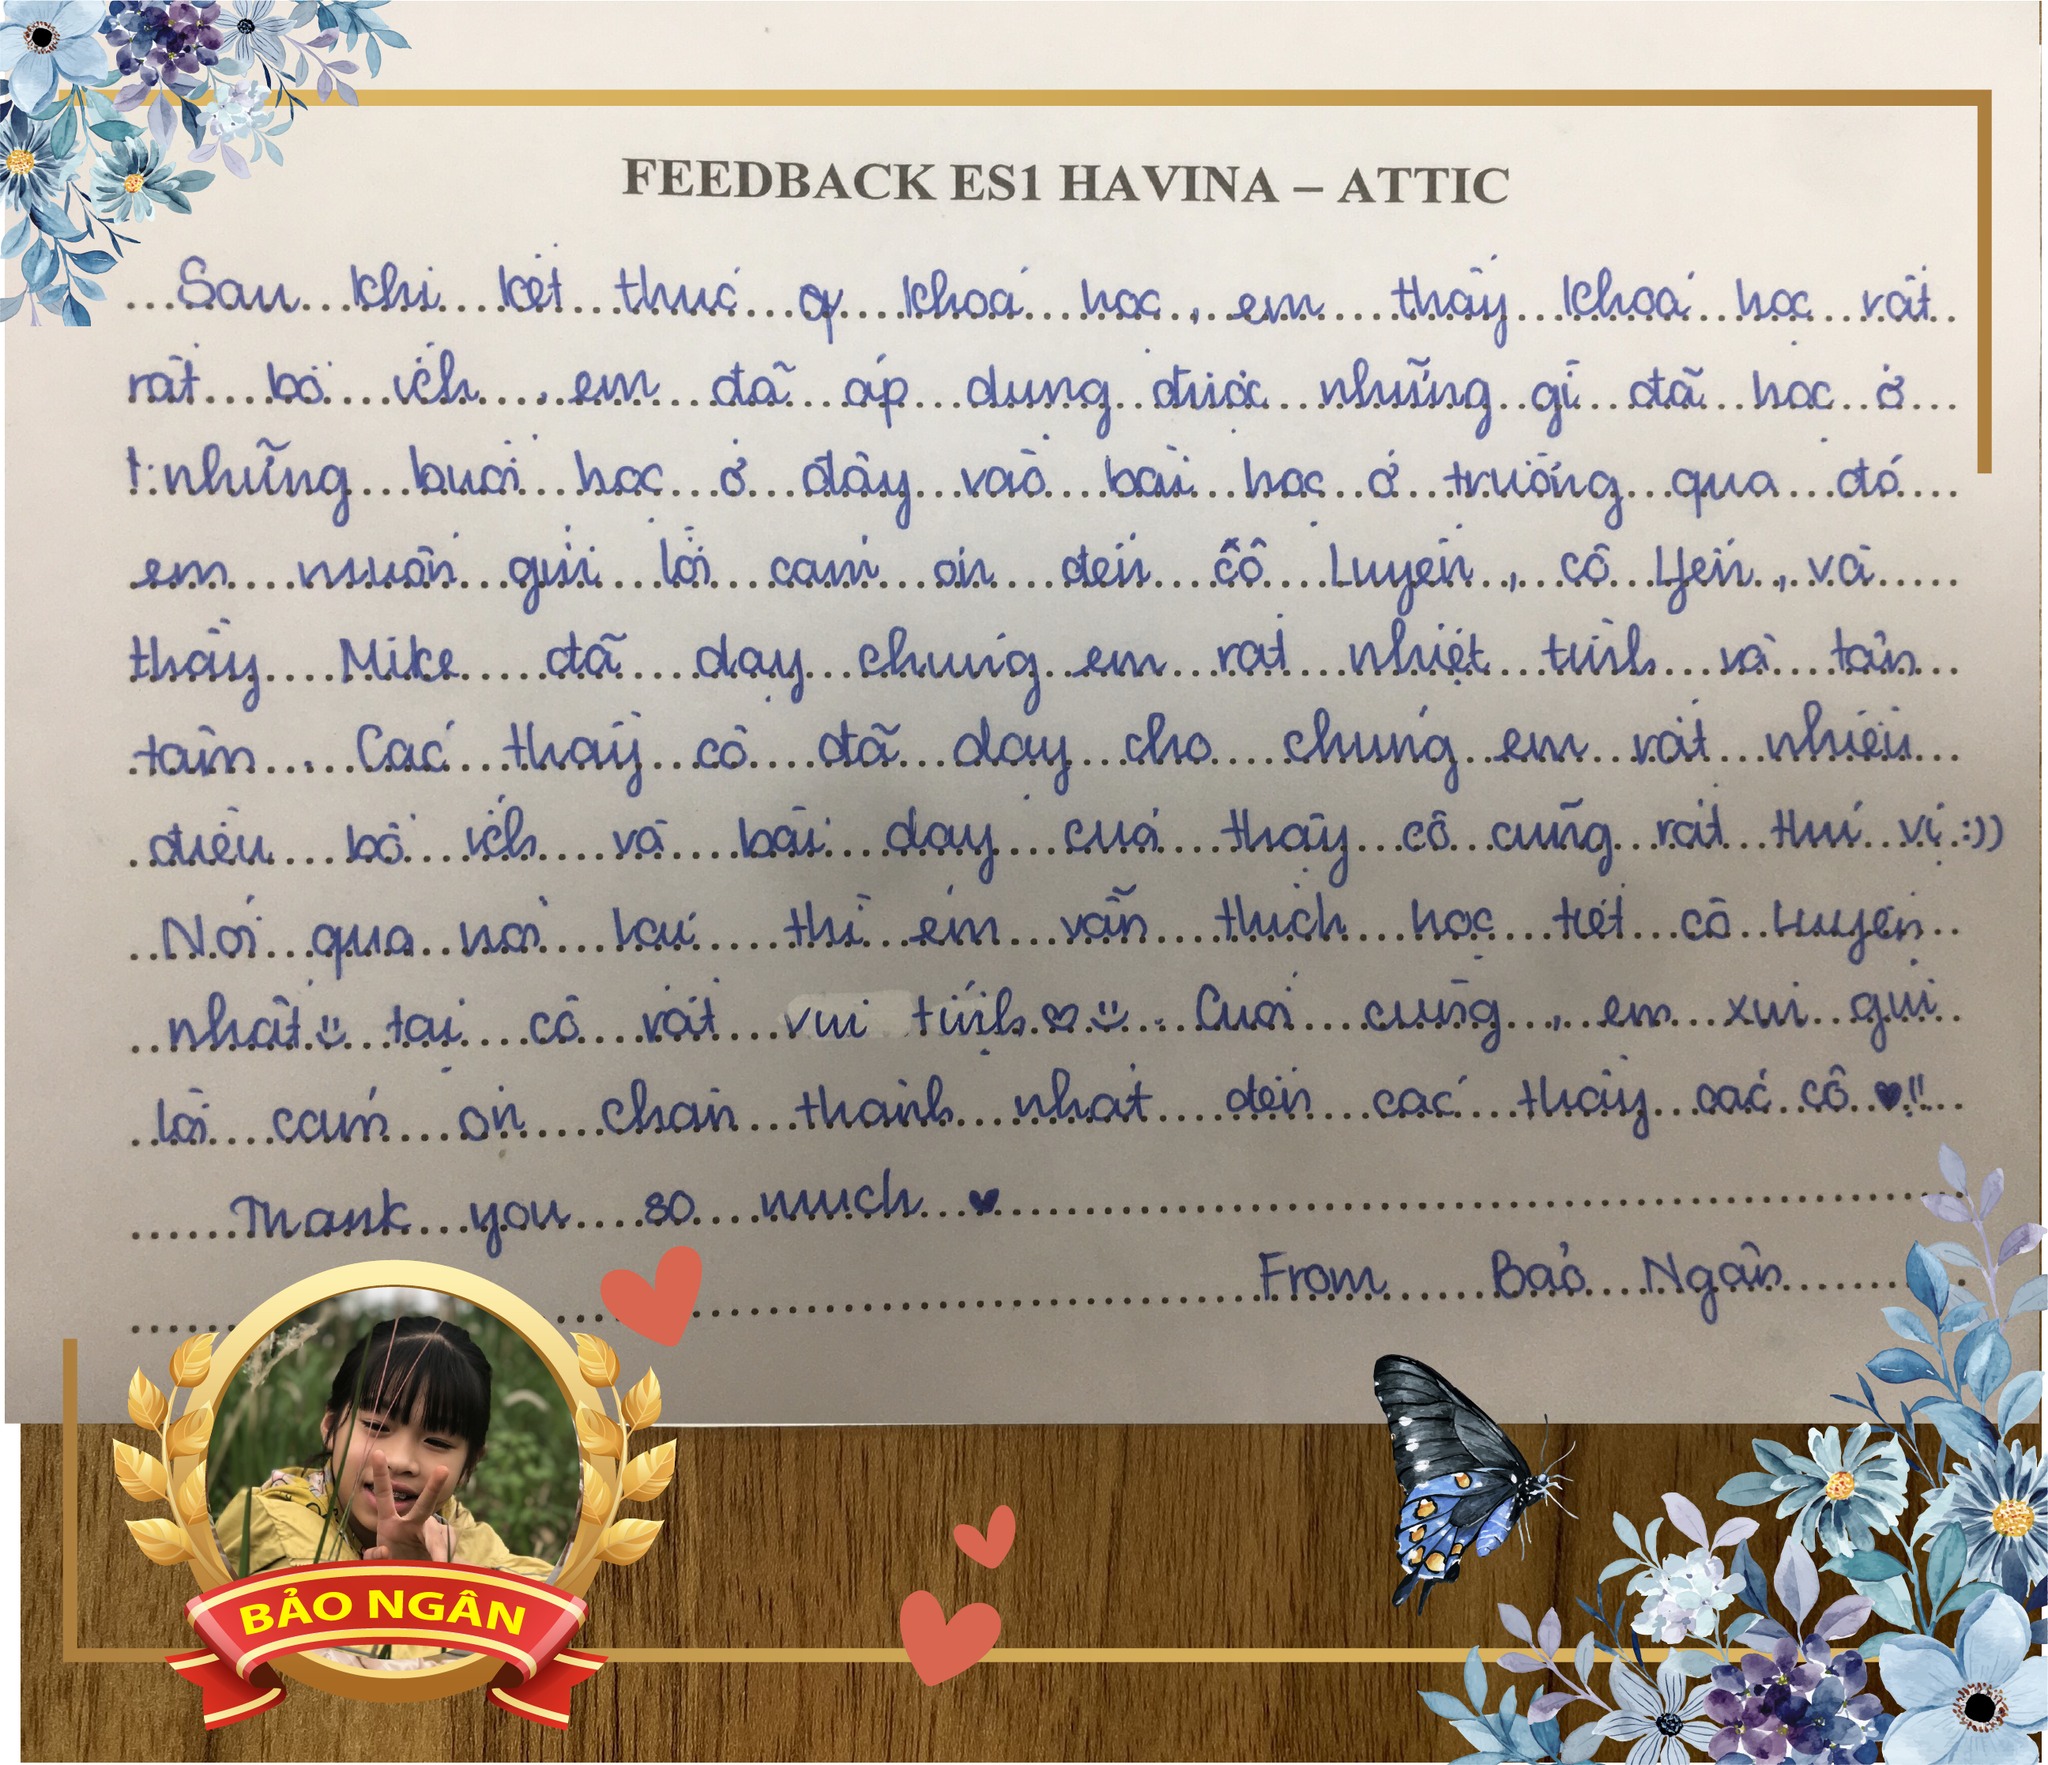 FEEDBACK ES1 HAVINA – ATTIC
Sau khi kết thúc khoá học, em thấy khoá học rất
rất bổ ích, em đã áp dụng được những gì đã học ở
những buổi học ở đây vào bài học ở trường qua đó
em muốn gửi lời cảm ơn đến cô Luyến, cô Yến, và
thầy Mike đã dạy chúng em rất nhiệt tình và tận
tâm. Các thầy cô đã dạy cho chúng em rất nhiều
điều bổ ích và bài dạy của thầy cô cũng rất thú vị :))
Nói qua nói lại thì em vẫn thích học tiết cô Luyến
nhất tại cô rất vui tính ♡ . Cuối cùng, em xin gửi
lời cảm ơn chân thành nhất đến các thầy các cô ♥!!
Thank you so much ♥
From Bảo Ngân
BẢO NGÂN